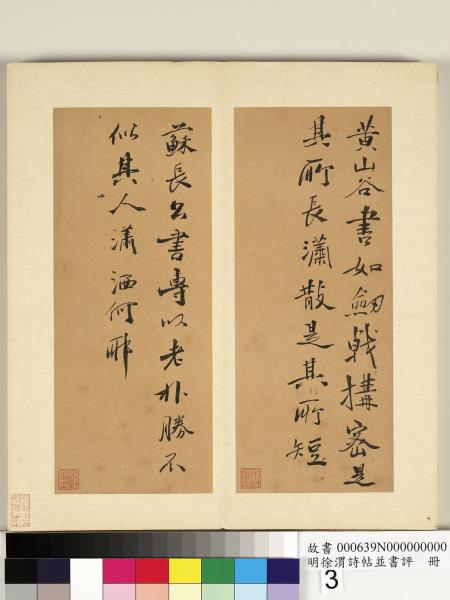 黄山谷書如劍戟搆密是
其所長瀟散是其所短
蘇長公書專以老朴勝不
似其人瀟洒何耶
故書 000639N000000000
明徐渭詩帖並書評 冊
3